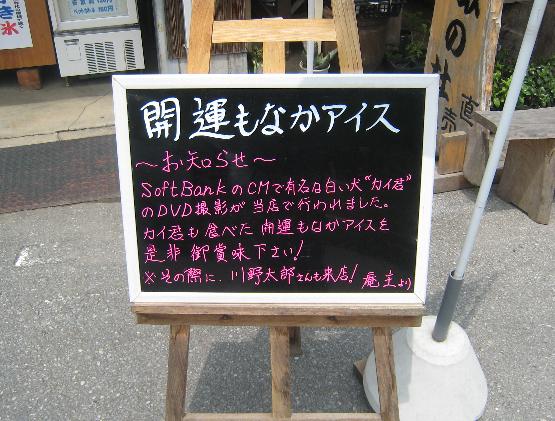 開運もなかアイス
～お知らせ～
SoftBankのCMで有名な白い犬"カイ君"
のDVD撮影が当店で行われました。
カイ君も食べた開運もなかアイスを
是非御賞味下さい!
※その際に、川野太郎さんも来店! 庵主より
氷
の杜
直売